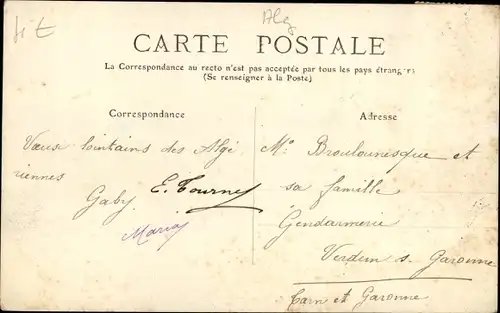 Alg
CARTE POSTALE
La Correspondance au recto n'est pas acceptée par tous les pays étrangers
(Se renseigner à la Poste)
Correspondance
Vœux lointains des Algé
riennes
Gaby E. Tourney
Maria
Adresse
Mr Broulounesque et
sa famille
Gendarmerie
Verdun s. Garonne
Tarn et Garonne